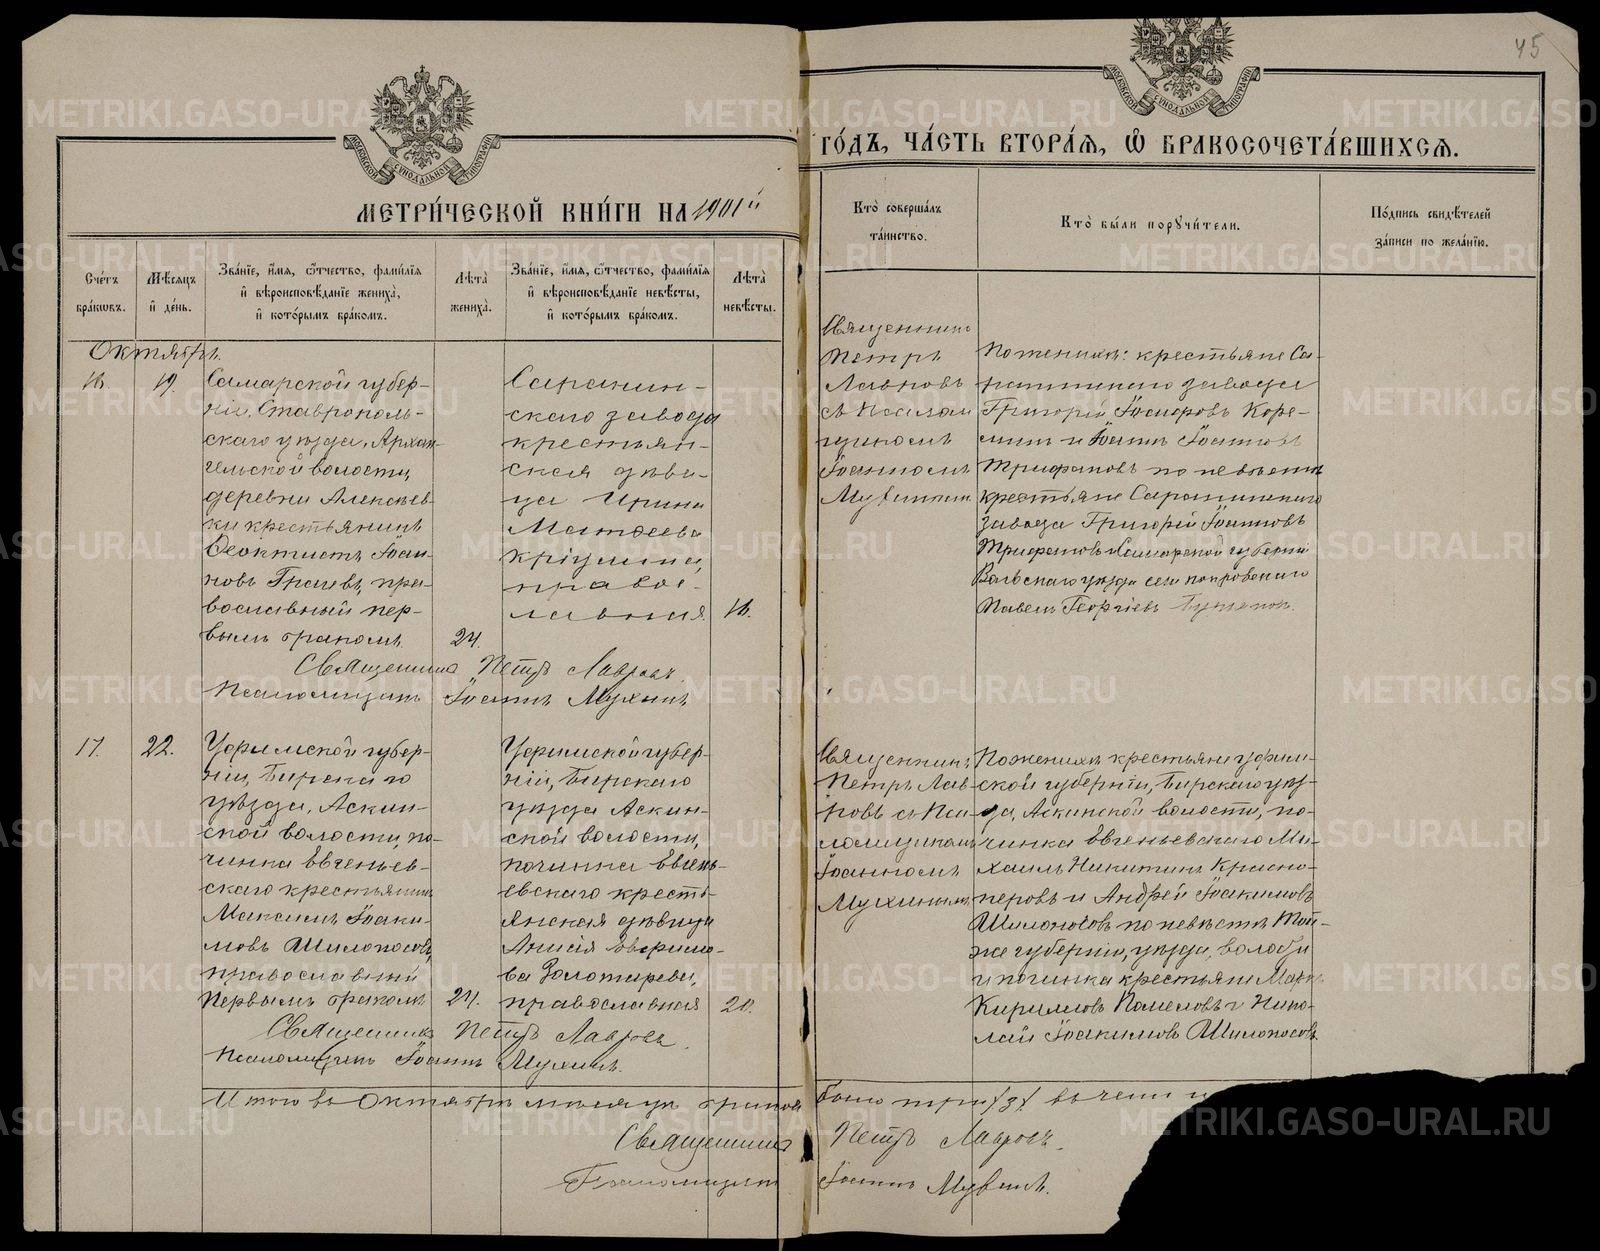 45
МЕТРИ́ЧЕСКОЙ КНИ́ГИ НА 1901й
ГО́ДЪ, ЧА́СТЬ ВТОРА́Я, Ѡ БРАКОСОЧЕТА́ВШИХСЯ.
МОСКОВСКОЙ СѴНОДАЛЬНОЙ ТИПОГРАФІИ
МОСКОВСКОЙ СѴНОДАЛЬНОЙ ТИПОГРАФІИ
Сче́тъ бра́кѡвъ.
Мѣ́сяцъ и҆ де́нь.
Зва́нїе, и҆́мя, ѻ҆́тчество, фамѝлїя и҆ вѣроисповѣ́данїе жениха̀, и҆ кото́рымъ бра́комъ.
Лѣ́та жениха̀.
Зва́нїе, и҆́мя, ѻ҆́тчество, фамѝлїя и҆ вѣроисповѣ́данїе невѣ́сты, и҆ кото́рымъ бра́комъ.
Лѣ́та невѣ́сты.
Кто̀ соверша́лъ та́инство.
Кто̀ бы́ли порꙋчи́тели.
По́дпись свидѣ́телей за́писи по жела́нїю.
Октябрь.
16.
19.
Самарской губер-
ніи, Ставрополь-
скаго уѣзда, Архан-
гельской волости,
деревни Алексѣев-
ки крестьянинъ
Ѳеоктистъ Іоан-
новъ Грачевъ, пра-
вославный пер-
вымъ бракомъ.
24.
Саранин-
скаго завода
крестьян-
ская дѣви-
ца Ирина
Матѳеева
православ-
лавная
16.
Священникъ
Петръ
Лавровъ
съ псалом
щикомъ
Іоанномъ
Мухинымъ
По женихѣ: крестьяне Са-
ранинскаго завода
Григорій Іосифовъ Коре-
минъ и Іоаннъ Іоанновъ
Трифановъ по невѣстѣ
крестьяне Саранинскаго
завода Григорій Іоанновъ
Трифановъ и Самарской губерніи
уѣзда села Покровскаго
Павелъ Георгіевъ
Священникъ Петръ Лавровъ.
Псаломщикъ Іоаннъ Мухинъ
17.
22.
Уфимской губер-
ніи, Бирскаго
уѣзда, Аскин-
ской волости, по-
чинка Евгеньев-
скаго крестьянинъ
Максимъ Іоаки-
мовъ Шилоносовъ,
православный
первымъ бракомъ
24.
Уфимской губер-
ніи, Бирскаго
уѣзда Аскин-
ской волости,
починка Евгень-
евскаго кресть-
янская дѣвица
Анисія Евфимо-
ва Золотарева,
православная
20.
Священникъ
Петръ Лав-
ровъ съ пса-
ломщикомъ
Іоанномъ
Мухинымъ
По женихѣ крестьяне Уфим-
ской губерніи, Бирскаго уѣз-
да, Аскинской волости, по-
чинка Евгеньевскаго Ми-
хаилъ Никитинъ Красно-
перовъ и Андрей Іоакимовъ
Шилоносовъ по невѣстѣ той-
же губерніи, уѣзда, волости
и починка крестьяне Маркъ
Кирилловъ Пометовъ и Нико-
лай Іоакимовъ Шилоносовъ.
Священникъ Петръ Лавровъ.
Псаломщикъ Іоаннъ Мухинъ.
Итого въ Октябрѣ мѣсяцѣ браковъ было три /3/
Священникъ Петръ Лавровъ.
Псаломщикъ Іоаннъ Мухинъ.
METRIKI.GASO-URAL.RU